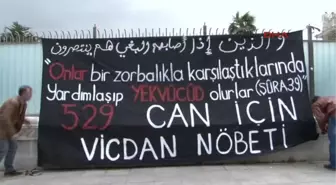 والذين إذا أصابهم البغي هم ينتصرون
"Onlar bir zorbalıkla karşılaştıklarında
Yardımlaşıp YEKVÜCÜD olurlar (ŞÛRA39)"
529 CAN İÇİN
VİCDAN NÖBETİ